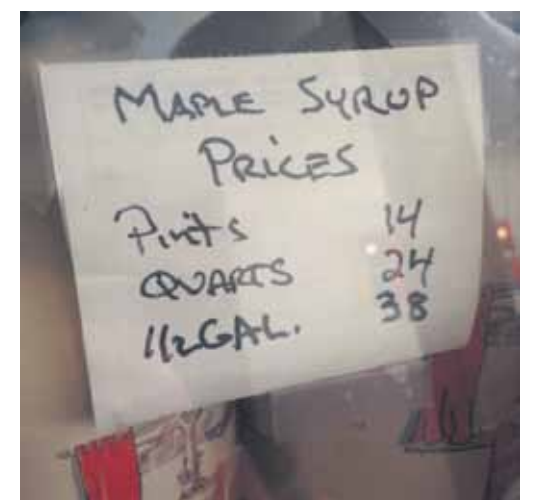 MAPLE SYRUP
PRICES
Pints 14
QUARTS 24
1/2 GAL. 38